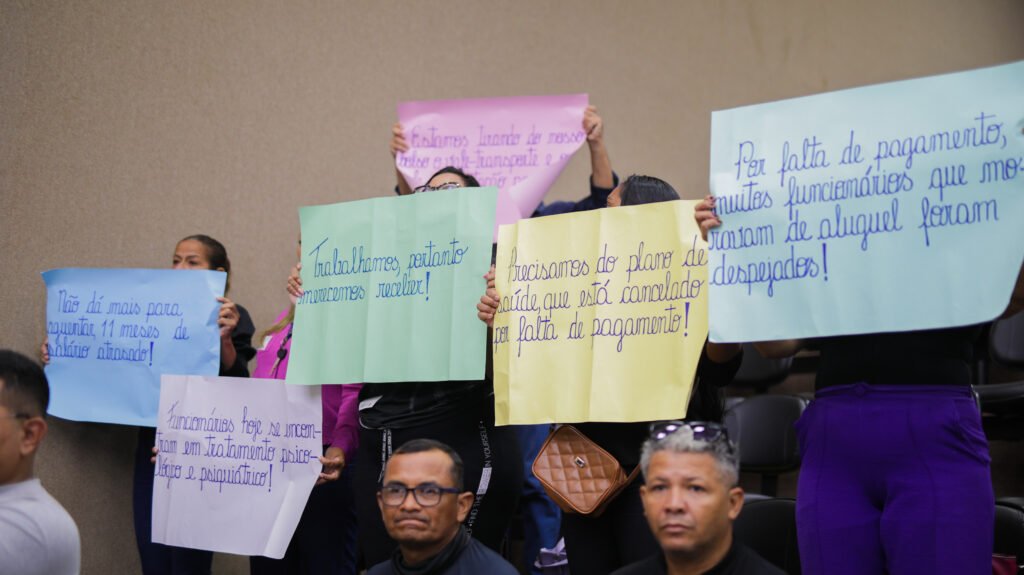 Estamos Tirando do nosso
bolso o vale-transporte e o
Por falta de pagamento,
muitos funcionários que mo-
ravam de aluguel foram
despejados!
Trabalhamos, portanto
merecemos receber!
Precisamos do plano de
saúde, que está cancelado
por falta de pagamento!
Não dá mais para
aguentar, 11 meses de
salário atrasado!
Funcionários hoje se encon-
tram em tratamento psico-
lógico e psiquiátrico!